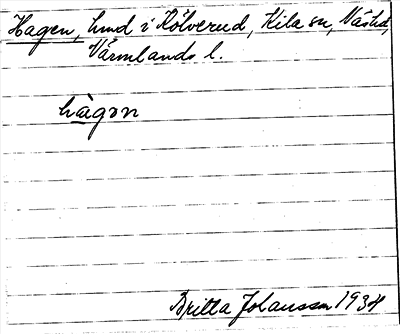 Hagen, hmd i Kölverud, Kila sn,
Värmlands l.
hàgɘn
Britta Johansson 1934